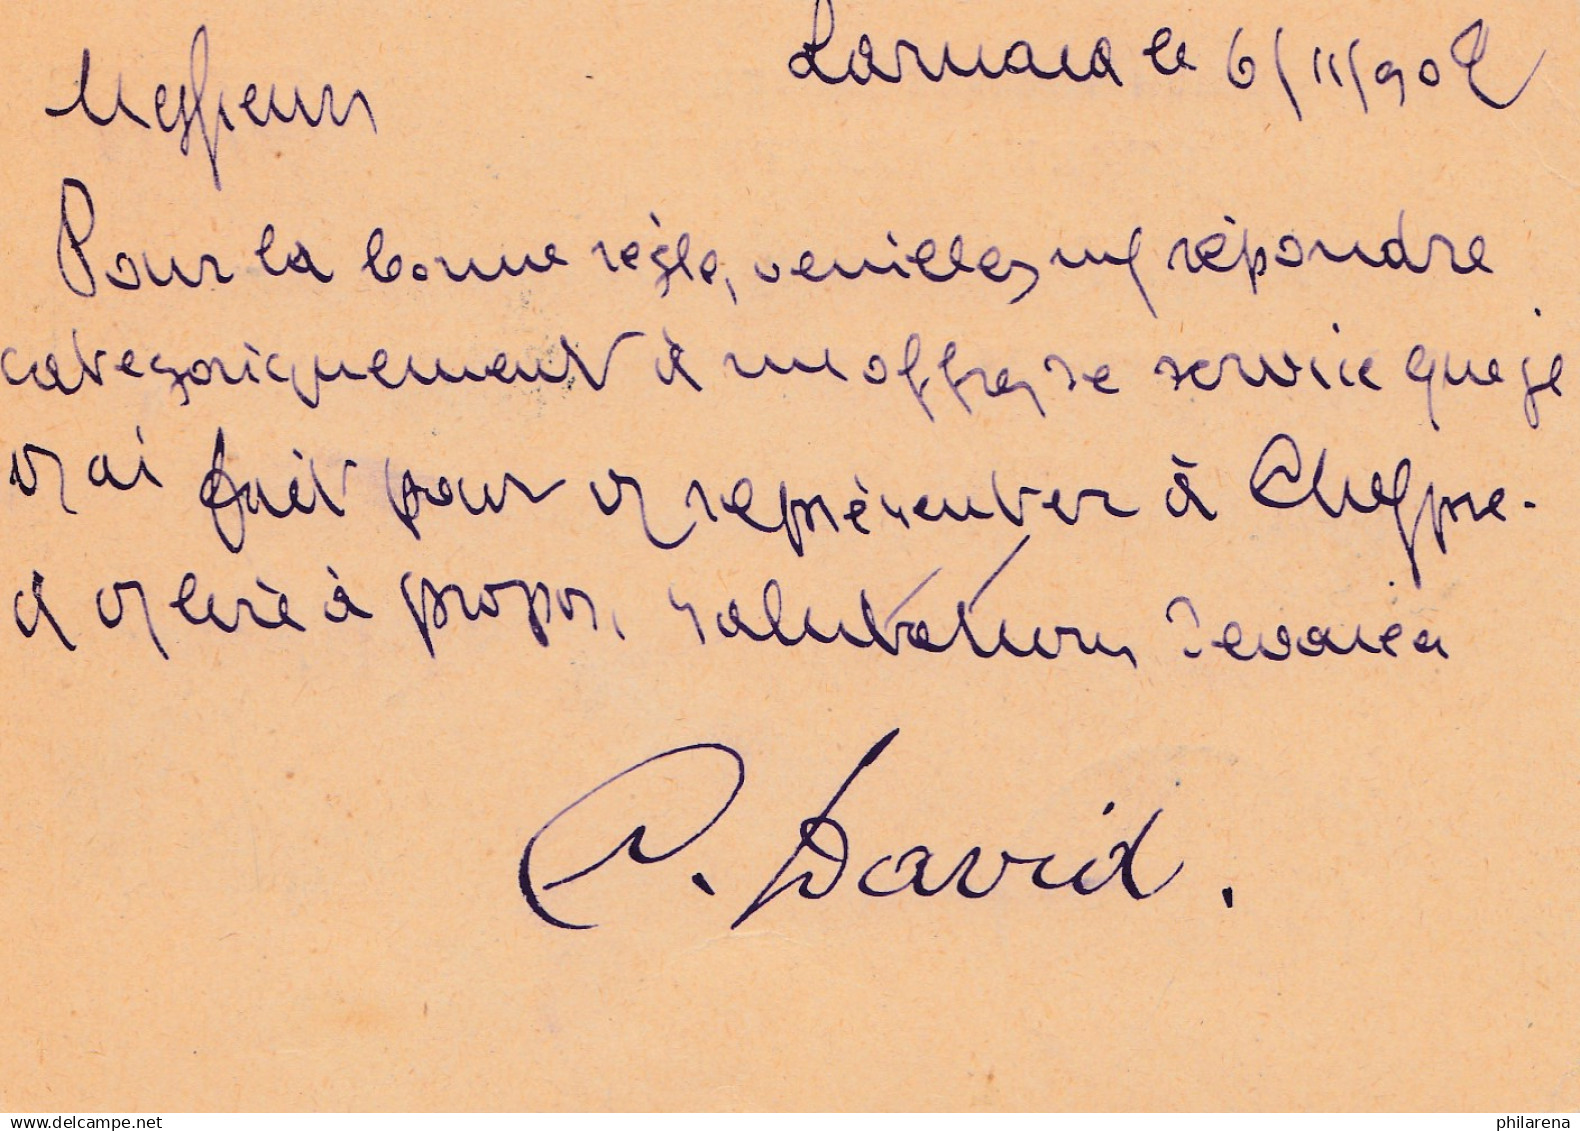 Larnaca le 6/II/902
Messieurs
Pour la bonne règle, veuillez me répondre
categoriquement à mes offres de service que je
vs ai fait pour vs représenter à Chypre.
à vs lire à propos, salutations
C. David.
delcampe.net
philarena